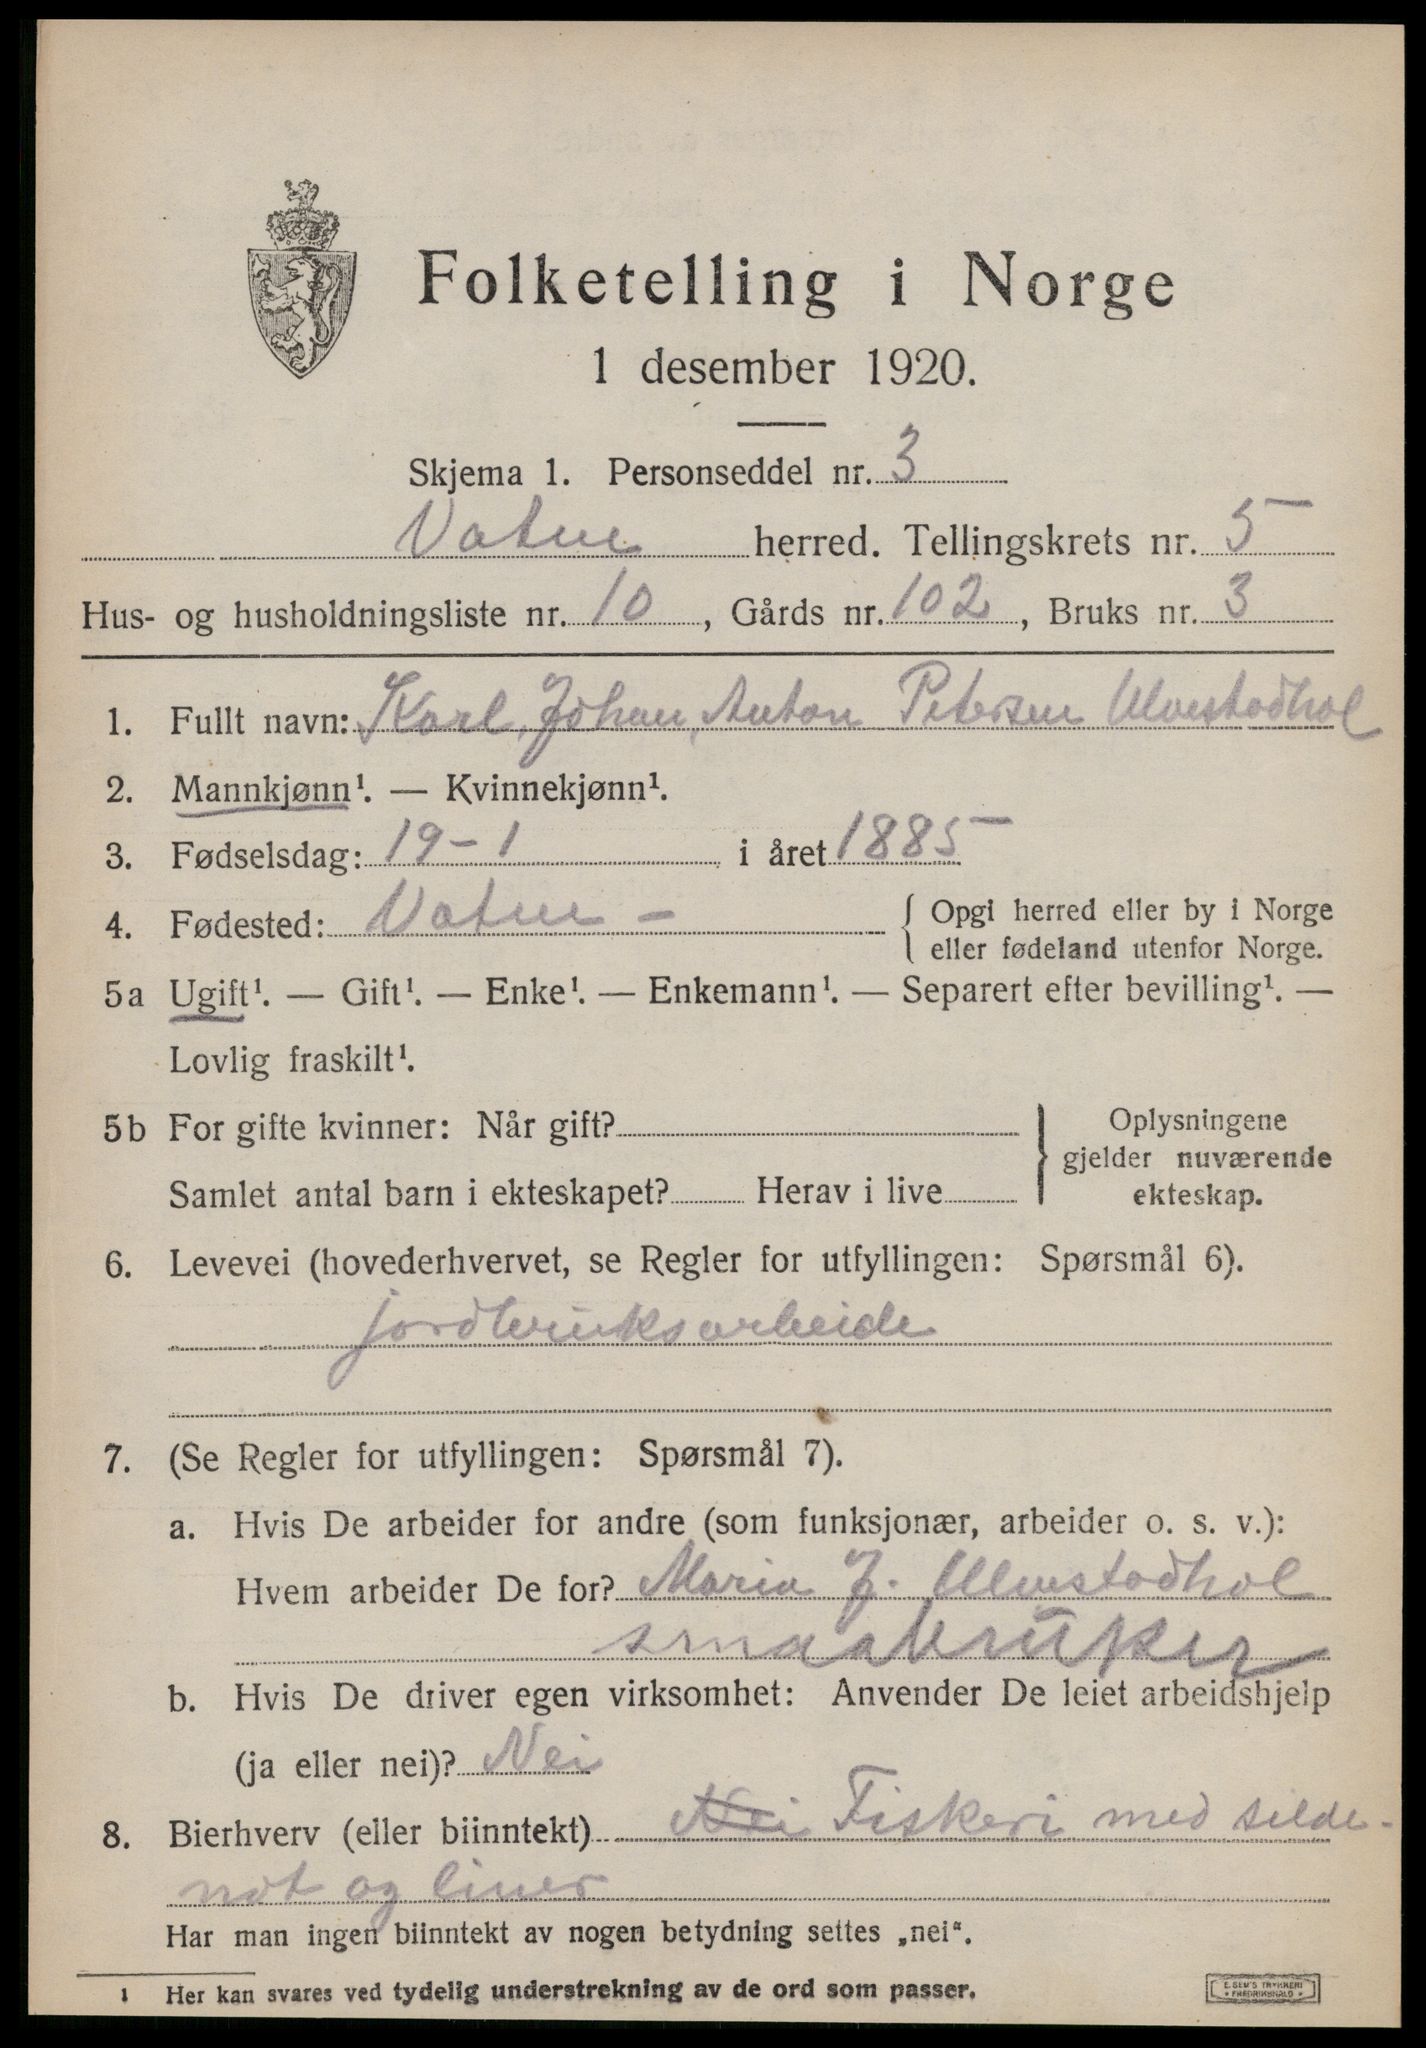 Folketelling i Norge
1 desember 1920.
Skjema 1. Personseddel nr. 3
Vatne herred. Tellingskrets nr. 5
Hus- og husholdningsliste nr. 10, Gårds nr. 102, Bruks nr. 3
1. Fullt navn: Karl, Johan, Anton Petersen Ulvestadhol
2. Mannkjønn¹. — Kvinnekjønn¹.
3. Fødselsdag: 19-1 i året 1885
4. Fødested: Vatne - { Opgi herred eller by i Norge
eller fødeland utenfor Norge.
5a Ugift¹. — Gift¹. — Enke¹. — Enkemann¹. — Separert efter bevilling¹. —
Lovlig fraskilt¹.
5b For gifte kvinner: Når gift? } Oplysningene
gjelder nuværende
Samlet antal barn i ekteskapet? Herav i live ekteskap.
6. Levevei (hovederhvervet, se Regler for utfyllingen: Spørsmål 6).
jordbruksarbeide
7. (Se Regler for utfyllingen: Spørsmål 7).
a. Hvis De arbeider for andre (som funksjonær, arbeider o. s. v.):
Hvem arbeider De for? Maria J. Ulvestadhol
smaabruker
b. Hvis De driver egen virksomhet: Anvender De leiet arbeidshjelp
(ja eller nei)? Nei
8. Bierhverv (eller biinntekt) Nei Fiskeri med silde-
not og liner
Har man ingen biinntekt av nogen betydning settes „nei“.
1 Her kan svares ved tydelig understrekning av de ord som passer.
E. SEM'S TRYKKERI
* FREDRIKSHALD *